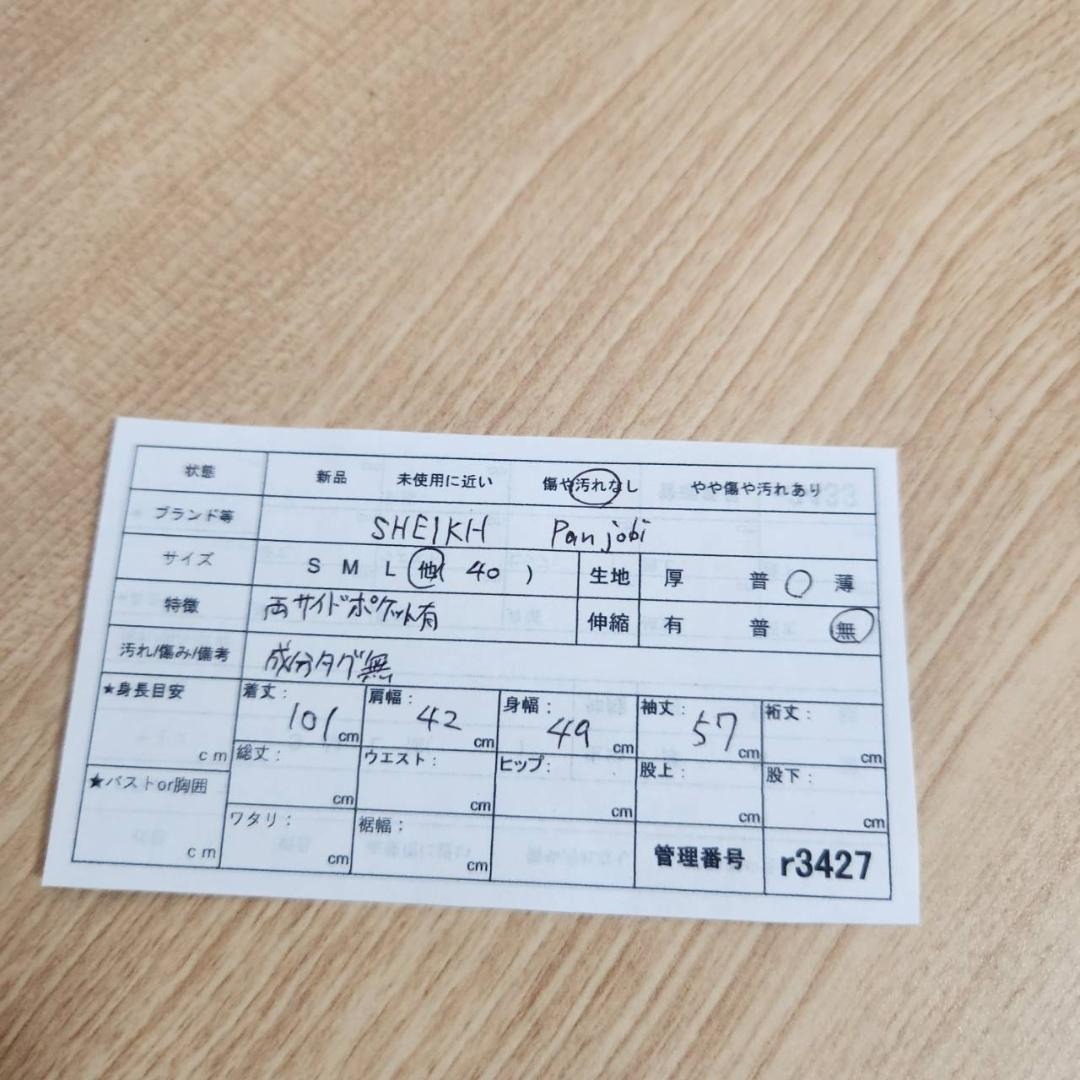 状態 新品 未使用に近い 傷や汚れなし やや傷や汚れあり
ブランド等 SHEIKH Panjobi
サイズ S M L 他( 40 ) 生地 厚 普 薄
特徴 両サイドポケット有 伸縮 有 普 無
汚れ/傷み/備考 成分タグ無
★身長目安 cm 着丈: 101 cm 肩幅: 42 cm 身幅: 49 cm 袖丈: 57 cm 裄丈: cm
★バストor胸囲 cm 総丈: cm ウエスト: cm ヒップ: cm 股上: cm 股下: cm
ワタリ: cm 裾幅; cm 管理番号 r3427